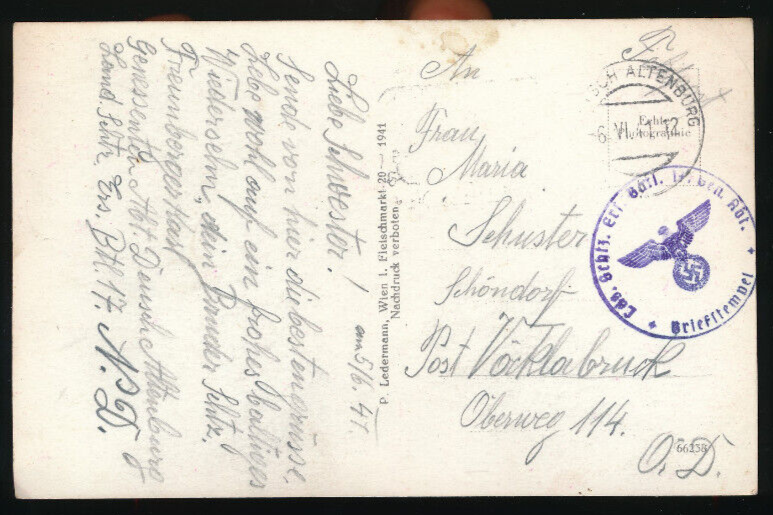 Liebe Schwester!
am 5/6. 41.
Sende von hier die besten Grüsse,
Lebe wohl auf ein frohes baldiges
Wiedersehn, dein Bruder Schtz.
Karl
Genesenten Abt. Deusch Altenburg
Land. Schtz. Ers. Btl. 17. N. D.
P. Ledermann, Wien I. Fleischmarkt 20 — 1941
Nachdruck verboten
An
Frau
Maria
Schuster
Schöndorf
Post Vöcklabruck
Oberweg 114.
O. D.
SCH ALTENBURG
6. VI. 41. 12
Echte
Photographie
Lds. Schtz. Ers. Batl. 17. Gen. Abt.
Briefstempel
66238